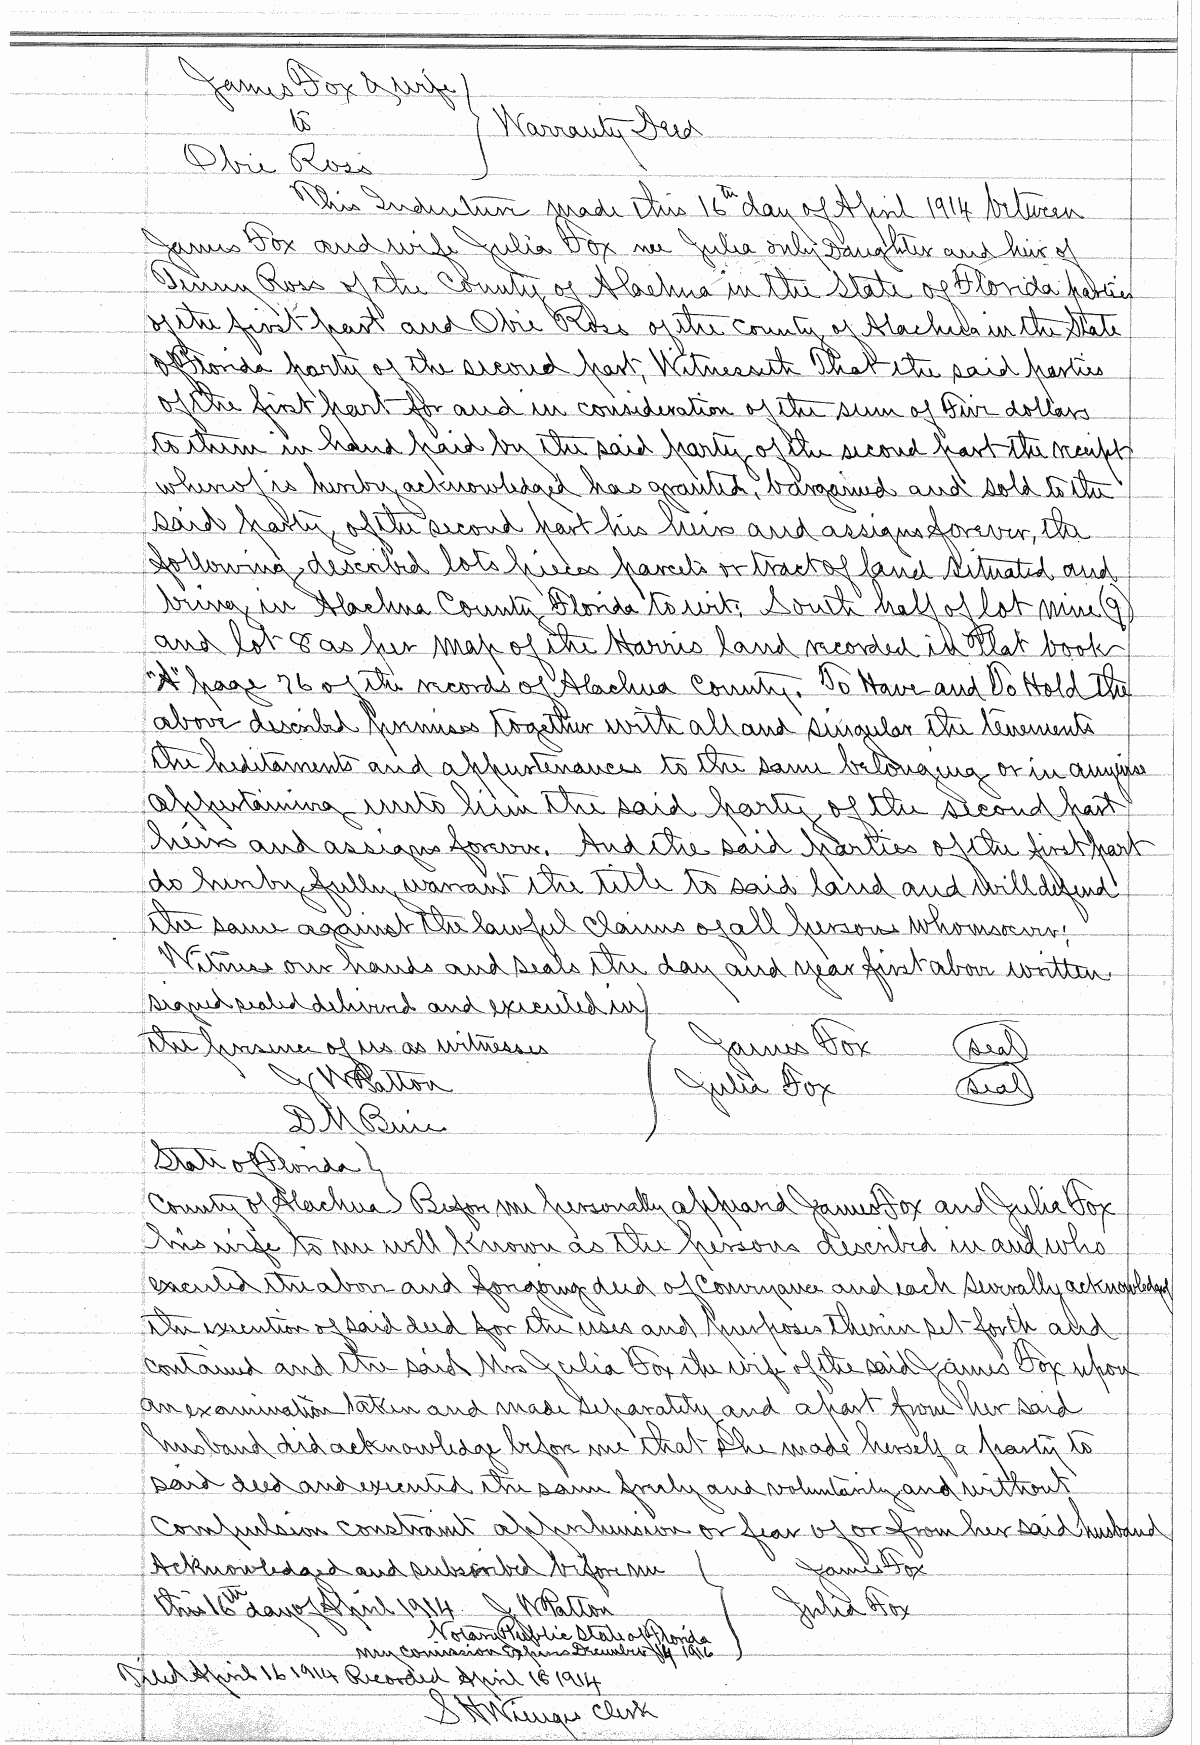 James Fox & wife
to
Warranty Deed
Obie Ross
This Indenture made this 16th day of April 1914 between
James Fox and wife Julia Fox nee Julia only Daughter and heir of
Ross of the County of Alachua in the State of Florida parties
of the first part and Obie Ross of the county of Alachua in the State
of Florida party of the second part, Witnesseth That the said parties
of the first part for and in consideration of the sum of Five dollars
to them in hand paid by the said party of the second part the receipt
whereof is hereby acknowledged has granted, bargained and sold to the
said party of the second part his heirs and assigns forever, the
following described lots pieces parcels or tract of land situated and
being in Alachua County Florida to wit: South half of lot nine (9)
and lot 8 as per map of the Harris land recorded in Plat book
"A" page 76 of the records of Alachua County. To Have and To Hold the
above described premises together with all and singular the tenements
the heditaments and appurtenances to the same belonging or in anywise
appertaining unto him the said party of the second part
heirs and assigns forever. And the said parties of the first part
do hereby fully warrant the title to said land and will defend
the same against the lawful claims of all persons whomsoever;
Witness our hands and seals the day and year first above written
signed sealed delivered and executed in
the presence of us as witnesses James Fox (Seal)
J W Patton Julia Fox (Seal)
D M
State of Florida
County of Alachua Before me personally appeared James Fox and Julia Fox
his wife to me well known as the persons described in and who
executed the above and foregoing deed of conveyance and each severally acknowledged
the execution of said deed for the uses and purposes therein set forth and
contained and the said Mrs Julia Fox the wife of the said James Fox upon
an examination taken and made separately and apart from her said
husband did acknowledge before me that she made herself a party to
said deed and executed the same freely and voluntarily and without
compulsion constraint apprehension or fear of or from her said husband
Acknowledged and subscribed before me James Fox
this 16th day of April 1914. J W Patton Julia Fox
Notary Public State of Florida
my comission Expires December 14 1916
Filed April 16 1914 Recorded April 18 1914
S H Wienges Clerk